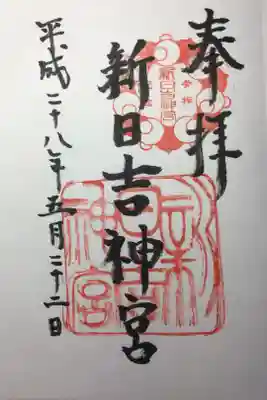 奉拝
新日吉神宮
平成二十八年五月二十二日
新日吉神宮